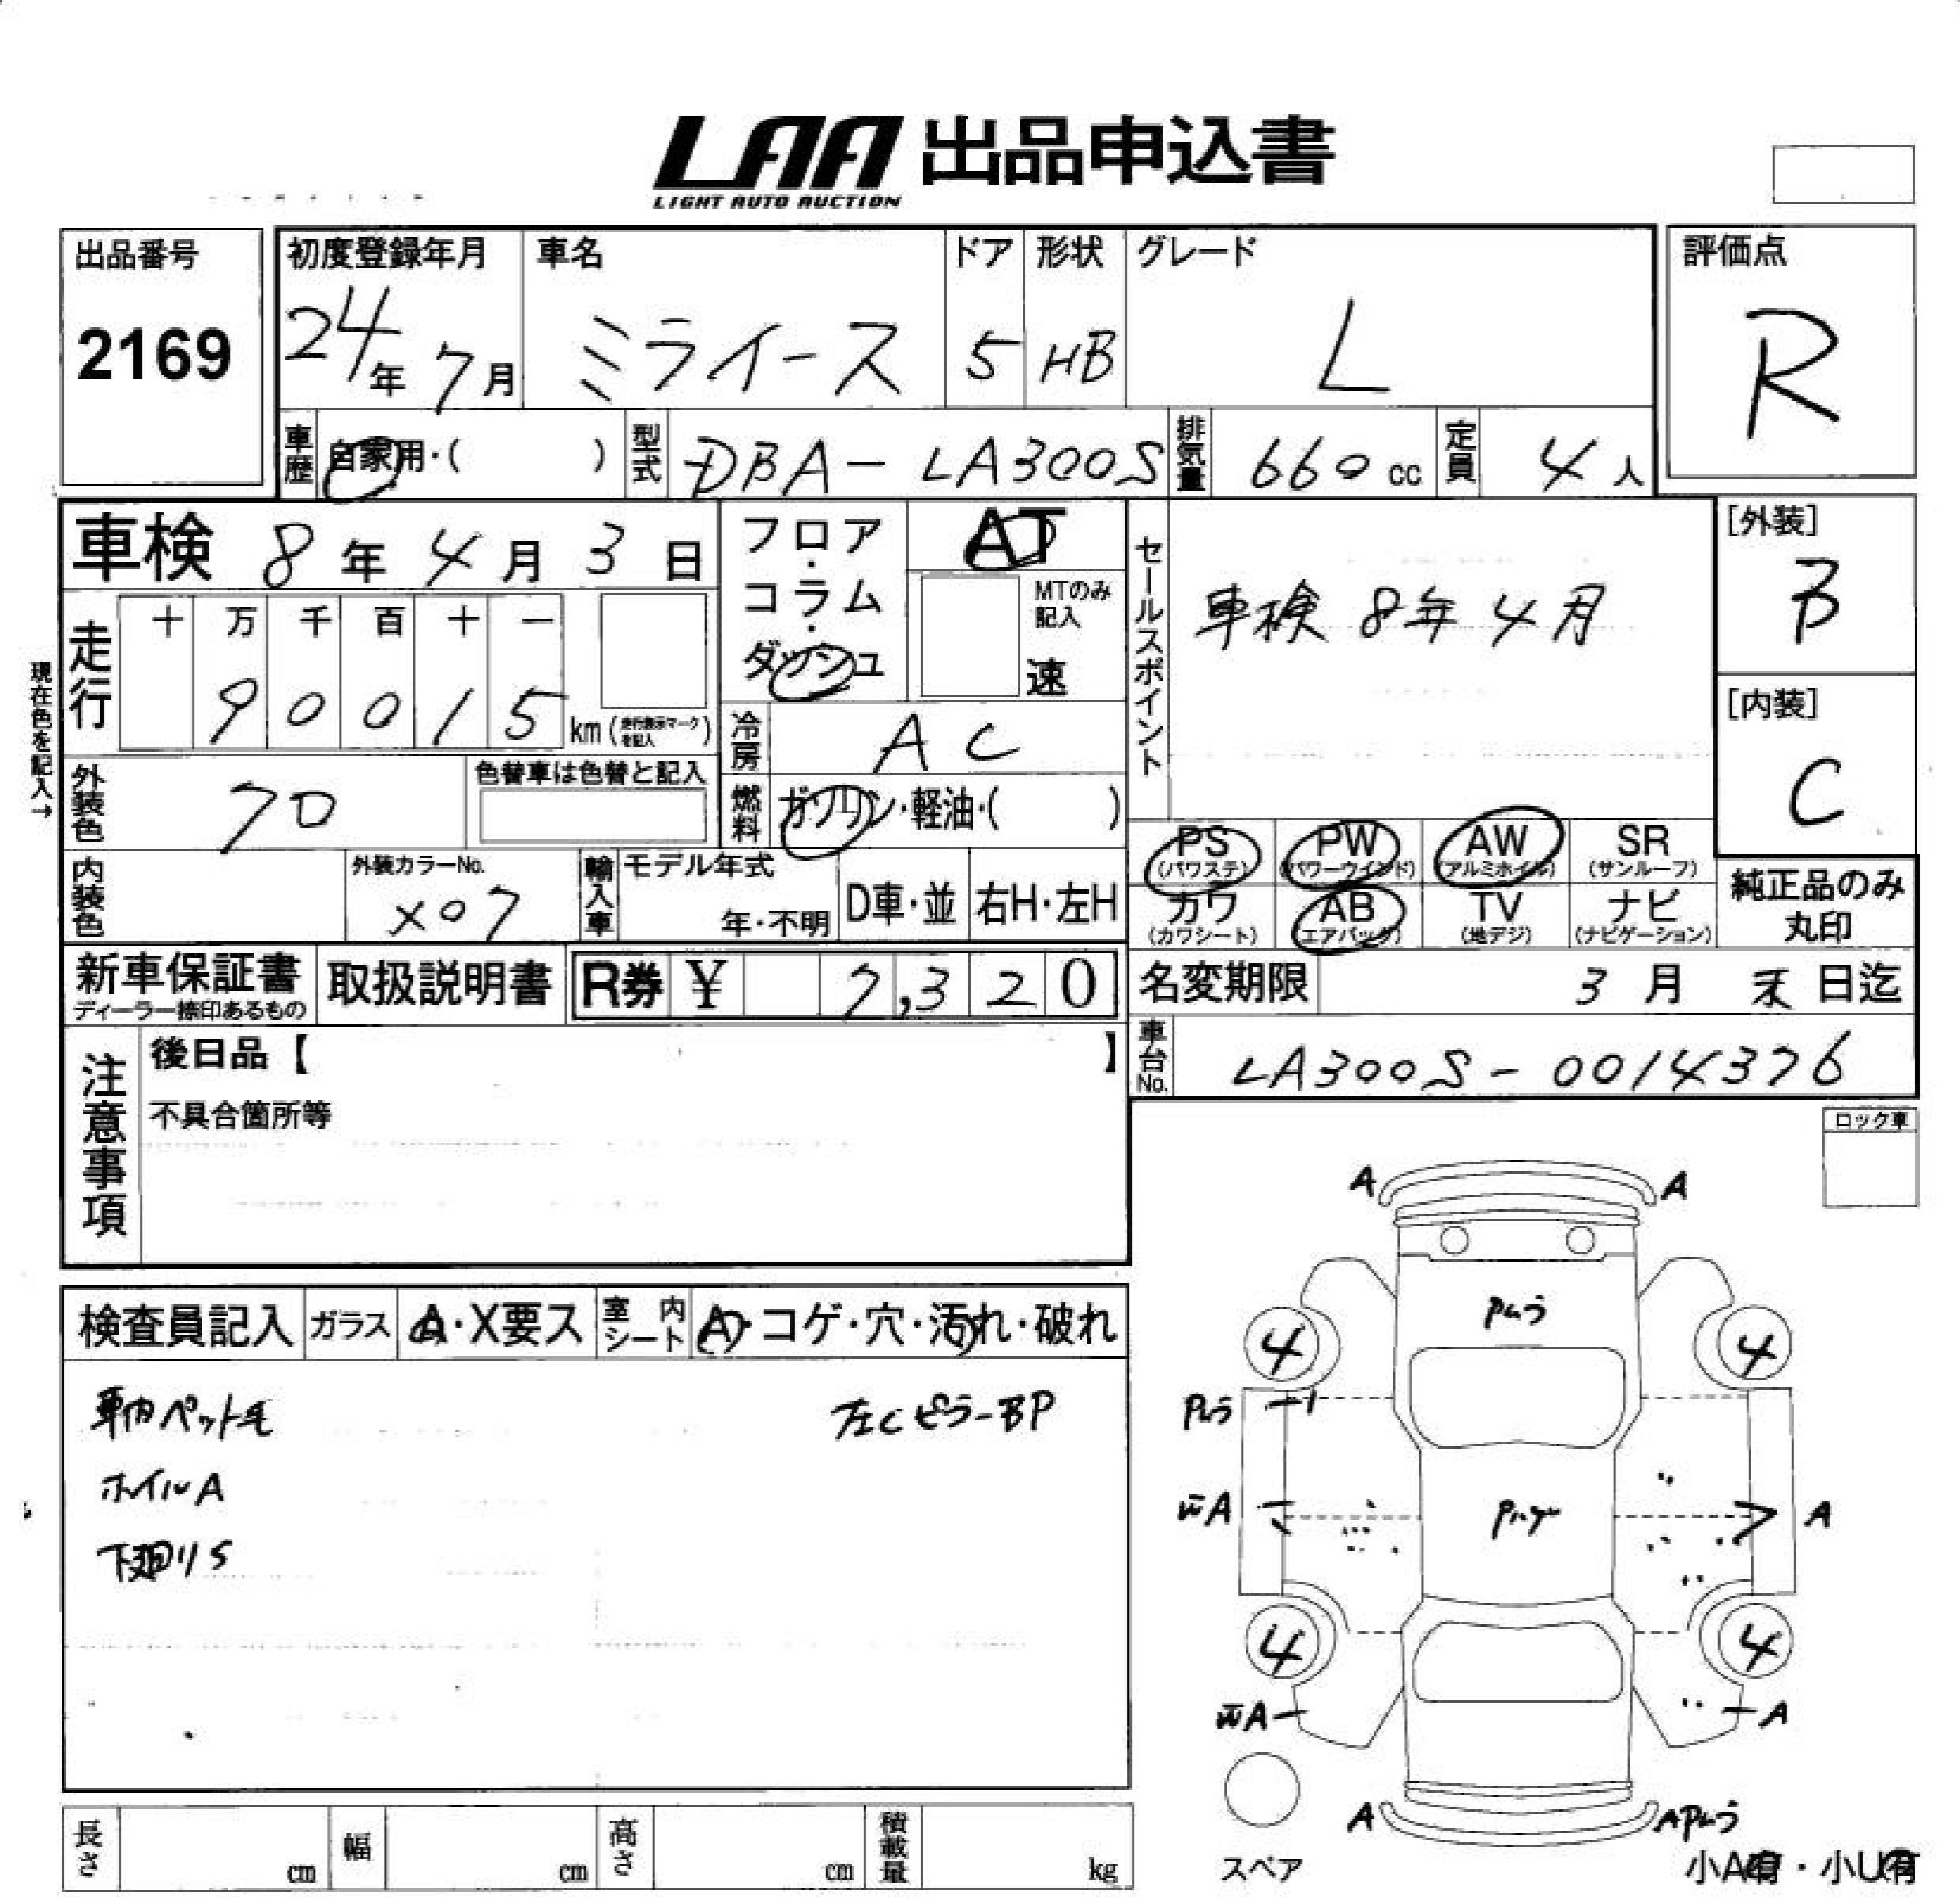 LAA 出品申込書
LIGHT AUTO AUCTION
出品番号
2169
初度登録年月
24年 7月
車名
ミライース
ドア
5
形状
HB
グレード
L
評価点
R
車歴
自家用・( )
型式
DBA-LA300S
排気量
660 cc
定員
4 人
車検 8年 4月 3日
現在色を記入→
走行
十 万 千 百 十 一
9 0 0 1 5
km (走行表示マークを記入)
フロア・コラム・ダッシュ
AT
MTのみ記入
速
冷房
AC
燃料
ガソリン・軽油・( )
外装色
色替車は色替と記入
内装色
外装カラーNo.
X07
輸入車
モデル年式
年・不明
D車・並
右H・左H
セールスポイント
車検 8年 4月
[外装]
B
[内装]
C
PS (パワステ)
PW (パワーウインド)
AW (アルミホイル)
SR (サンルーフ)
カワ (カワシート)
AB (エアバッグ)
TV (地デジ)
ナビ (ナビゲーション)
純正品のみ丸印
新車保証書
ディーラー捺印あるもの
取扱説明書
R券 ¥ 7,320
名変期限 3月 末日迄
車台No.
LA300S-0014376
注意事項
後日品【 】
不具合箇所等
ロック車
検査員記入
ガラス
A・X要ス
室内シート
A・コゲ・穴・汚れ・破れ
車内ペット毛
左Cピラ-BP
ホイルA
下廻りS
A A
Pムラ
4 4
Pムラ
A A
4 4
A A
A A Pムラ
スペア
小A有・小U有
長さ cm
幅 cm
高さ cm
積載量 kg